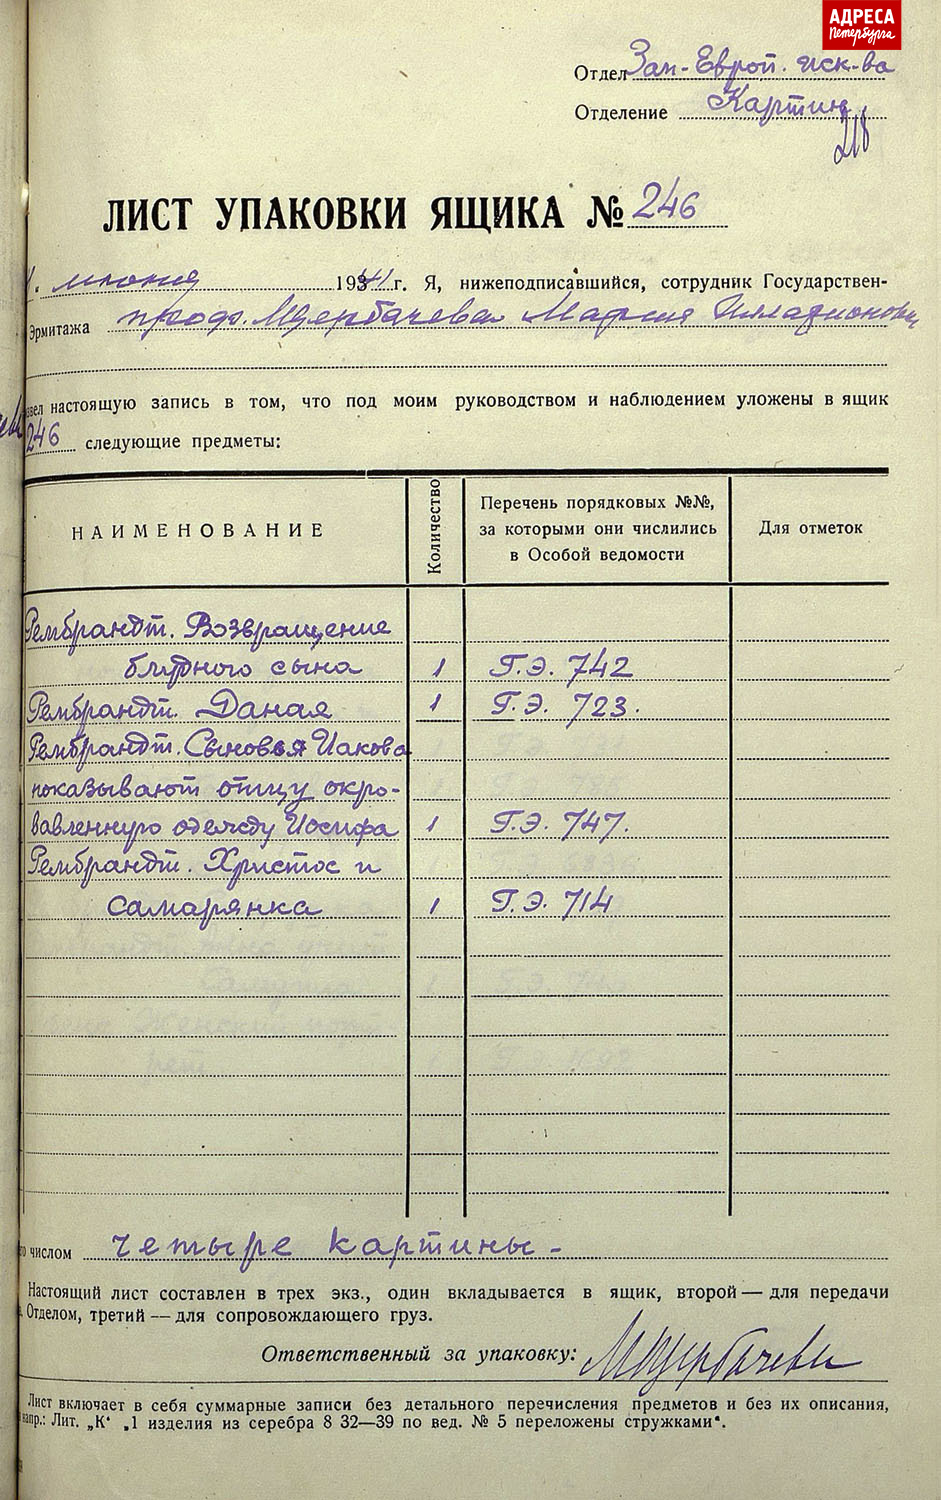 АДРЕСА
Петербурга
Отдел Зап-Европ. иск-ва
Отделение Картин
218
ЛИСТ УПАКОВКИ ЯЩИКА № 246
июня 1941 г. Я, нижеподписавшийся, сотрудник Государствен-
Эрмитажа проф. Щербачева Мария Илларионовна
вел настоящую запись в том, что под моим руководством и наблюдением уложены в ящик
246 следующие предметы:
НАИМЕНОВАНИЕ
Количество
Перечень порядковых №№,
за которыми они числились
в Особой ведомости
Для отметок
Рембрандт. Возвращение
блудного сына 1 Г.Э. 742
Рембрандт. Даная 1 Г.Э. 723.
Рембрандт. Сыновья Иакова
показывают отцу окро-
вавленную одежду Иосифа 1 Г.Э. 747.
Рембрандт. Христос и
самарянка 1 Г.Э. 714
числом четыре картины -
Настоящий лист составлен в трех экз., один вкладывается в ящик, второй — для передачи
Отделом, третий — для сопровождающего груз.
Ответственный за упаковку: МЩербачева
Лист включает в себя суммарные записи без детального перечисления предметов и без их описания,
напр.: Лит. „К“ „1 изделия из серебра 8 32—39 по вед. № 5 переложены стружками“.